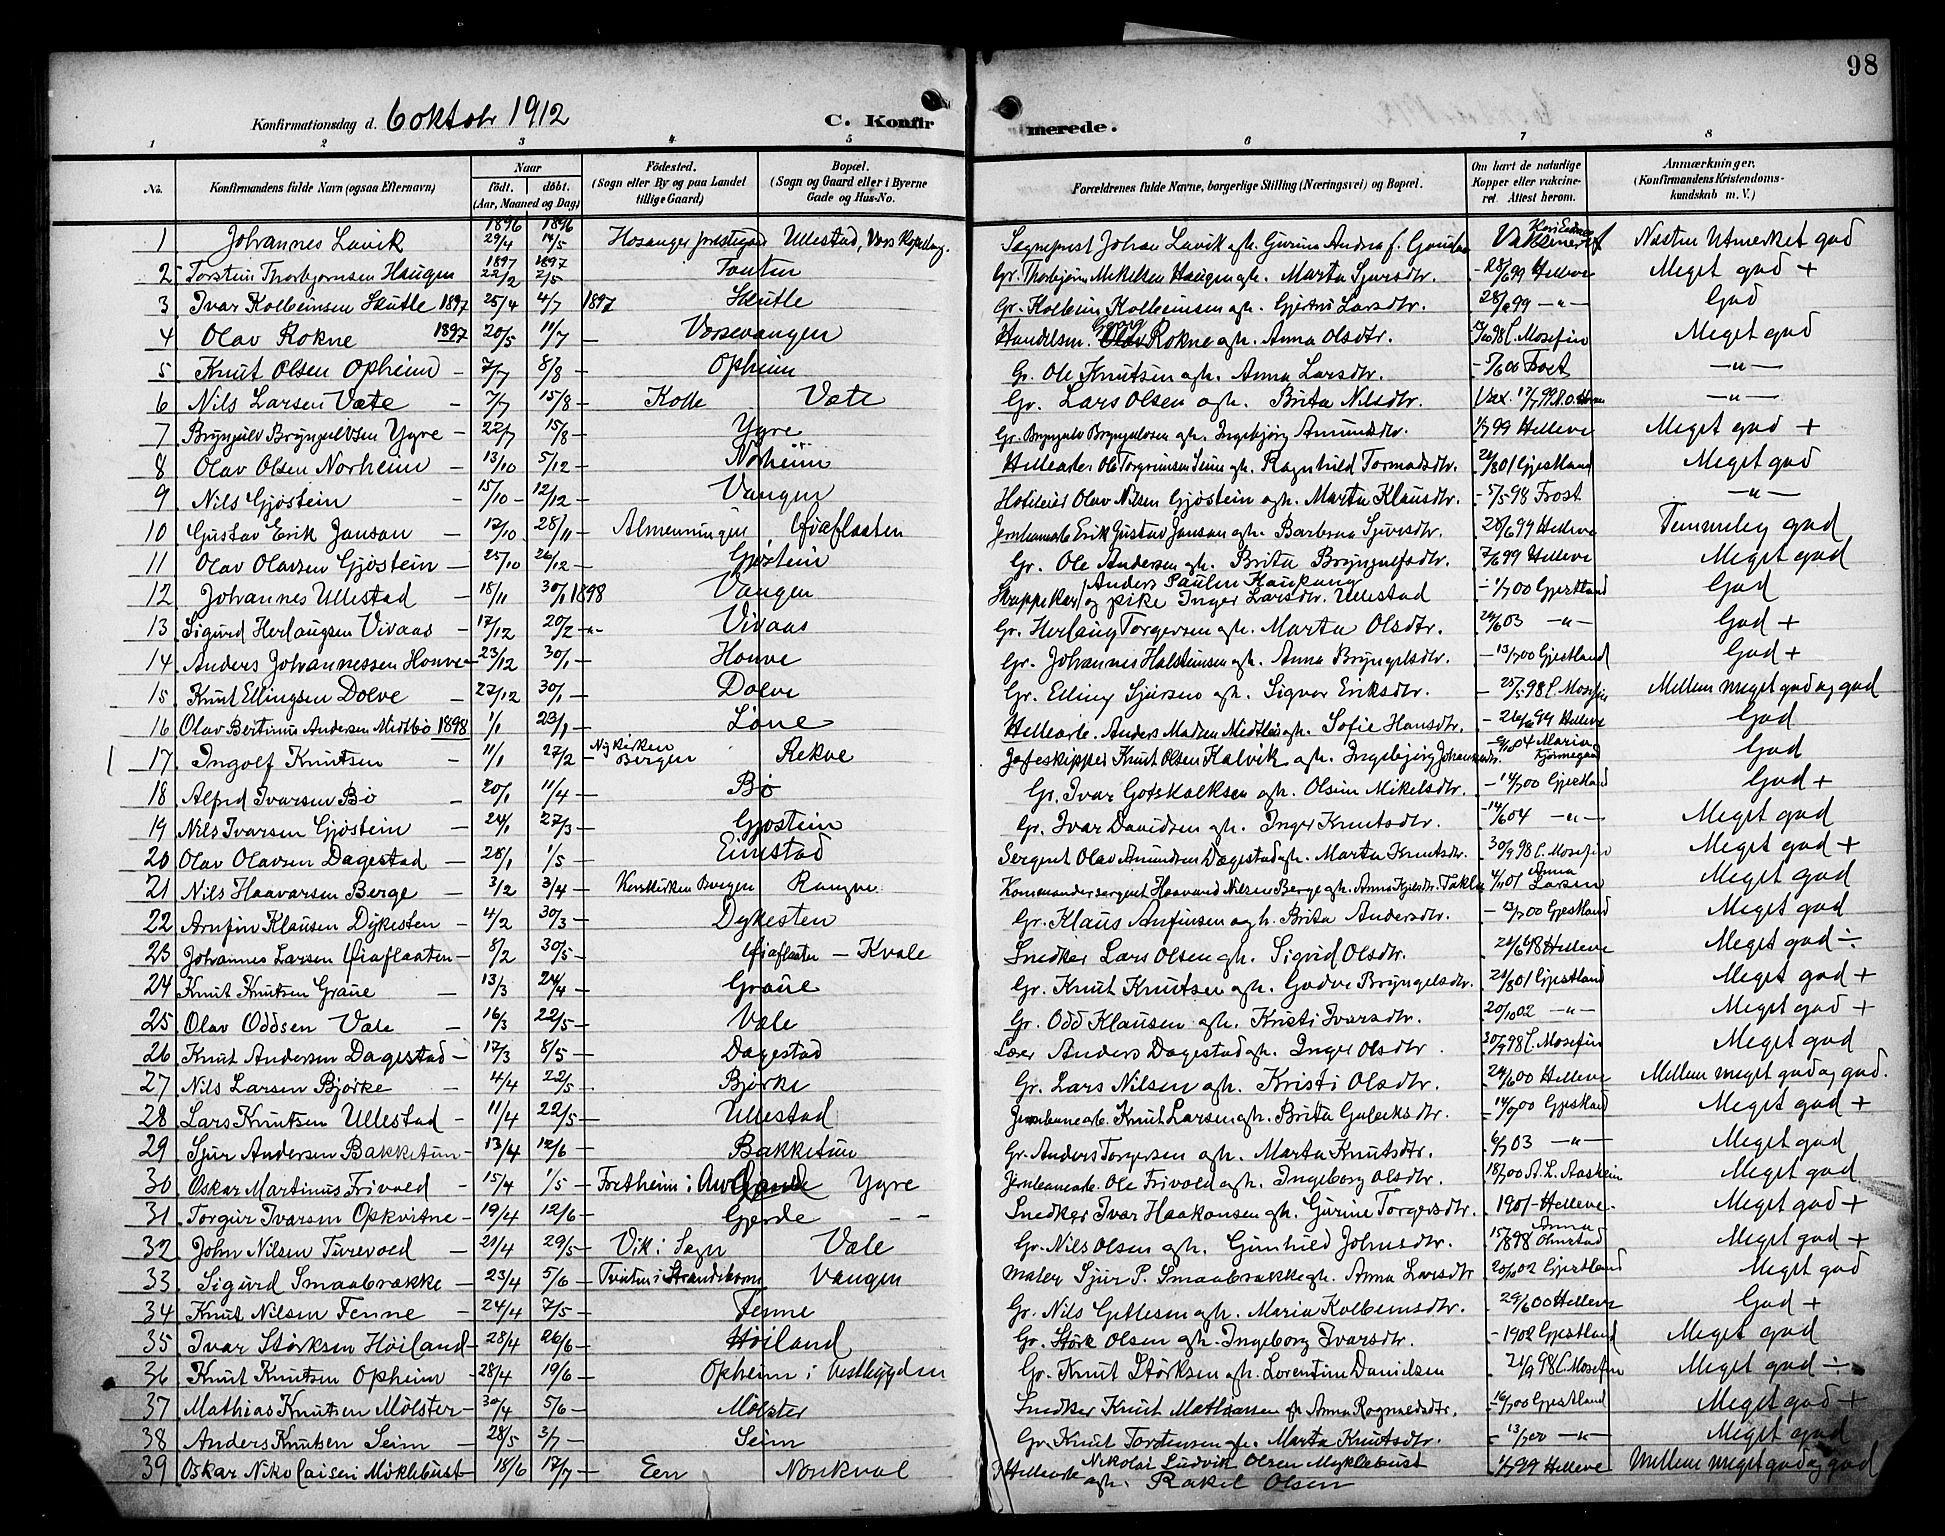 98
Konfirmationsdag d. 6 oktobr 1912 C. Konfirmerede.
1 2 3 4 5 6 7 8
No. Konfirmandens fulde Navn (ogsaa Efternavn) Naar født. døbt. (Aar, Maaned og Dag) Fødested. (Sogn eller By og paa Landet tillige Gaard) Bopæl. (Sogn og Gaard eller i Byerne Gade og Hus-No. Forældrenes fulde Navne, borgerlige Stilling (Næringsvei) og Bopæl. Om havt de naturlige Kopper eller vakcineret. Attest herom. Anmærkninger. (Konfirmandens Kristendomskundskab m. V.)
1 Johannes Lavik 1896 29/4 1896 14/5 Hosanger prestegjeld Ullestad, Sogneprest Johan Lavik Næsten Utmerket god
2 Torstein Thorbjørnsen Haugen 1897 22/2 1897 2/5 Tontin Gr. Thorbjørn Mikelsen Haugen ogh. Marta Sjursdtr. 28/6 99 Helleve Meget god +
3 Ivar Kolbeinsen Skutle 1897 25/4 4/7 1897 Skutle Gr. Kolbein Kolbeinsen ogh. Gjertru Larsdtr. 28/6 99 -"- God
4 Olav Rokne 1897 20/5 11/7 - Vossevangen Handelsm. Rokne ogh. Anna Olsdtr. 98 C. Mosefin Meget god
5 Knut Olsen Opheim - 7/7 8/8 - Opheim Gr. Ole Knutsen ogh. Anna Larsdtr. 00 Frost -"-
6 Nils Larsen Væte - 7/7 15/8 - Kolle Væte Gr. Lars Olsen ogh. Brita Nilsdtr. Vax. 99 -"-
7 Bryngulv Bryngulvsen Ygre - 22/7 15/8 - Ygre Gr. Bryngulv Bryngulvsen ogh. Ingebjørg Amundsdtr. 99 Helleve Meget god +
8 Olav Olsen Norheim - 13/10 5/12 - Norheim Hellearb. Ole Torgrimsen Seim ogh. Ragnhild Tormodsdtr. 01 Gjestland Meget god
9 Nils Gjøstein - 15/10 - 12/12 - Vangen Hoteleier Olav Nilsen Gjøstein ogh. Marta Klausdtr. - 5/5 98 Frost -"-
10 Gustav Erik Janson - 17/10 28/11 - Almenningen Øiaflaaten Jernbanearb Erik Gustav Janson ogh. Barbraa Sjursdtr. 28/6 99 Helleve Temmeleg god
11 Olav Olavsen Gjøstein - 25/10 26/12 - Gjøstein Gr. Ole Andersen ogh. Brita Bryngulfsdtr. 7/6 99 Helleve Meget god
12 Johannes Ullestad - 18/11 30/1 1898 Vangen Skreppekar Anders Paulin Kaupang og pike Inger Larsdtr. Ullestad - 1/7 00 Gjestland God
13 Sigurd Herlaugsen Vivaas - 17/12 20/2 -"- Vivaas Gr. Herlaug Torgersen ogh. Marta Olsdtr. 03 -"- God +
14 Anders Johannessen Honve - 23/12 30/1 - Honve Gr. Johannes Halsteinsen ogh. Anna Bryngelsdtr. - 13/7 00 Gjestland God +
15 Knut Ellingsen Dolve - 27/12 30/1 - Dolve Gr. Elling Sjursen ogh. Sigvor Eriksdtr. - 25/5 98 C. Mosefin Mellem meget god og god
16 Olav Bertinus Andersen Midtbø 1898 1/1 23/1 - Løne Hellearb. Anders Madsen Midtbø ogh. Sofie Hansdtr. 99 Helleve God
17 Ingolf Knutsen - 11/1 27/2 - Nykirken Bergen Rekve Jagteskipper Knut Olsen Kalvik ogh. Ingebjørg Johannesdtr. 04 Maria God
18 Alfred Ivarsen Bø - 20/1 11/4 - Bø Gr. Ivar Gotskalksen ogh. Olsine Mikelsdtr. - 14/7 00 Gjestland God +
19 Nils Ivarsen Gjøstein - 24/1 27/3 - Gjøstein Gr. Ivar Davidsen ogh. Inger Knutsdtr. - 14/6 04 -"- Meget god
20 Olav Olavsen Dagestad - 28/1 1/5 - Eimstad Sergent Olav Amundsen Dagestad ogh. Marta Knutsdtr. 30/9 98 C. Mosefin Meget god +
21 Nils Haavarsen Berge - 3/2 3/4 - Korskirken Bergen Rongve Kommandersergent Haavard Nilsen Berge ogh. Anna 01 Anna Larsen Meget god
22 Arnfin Klausen Dykesten - 4/2 30/3 - Dykesten Gr. Klaus Arnfinsen ogh. Brita Andersdtr. - 13/7 00 Gjestland Meget god
23 Johannes Larsen Øiaflaaten - 8/2 30/5 - Øiaflaaten - Kvale Snedker Lars Olsen ogh. Sigrid Olsdtr. 98 Helleve Meget god ÷
24 Knut Knutsen Graue - 13/3 24/4 - Graue Gr. Knut Knutsen ogh. Gudve Bryngelsdtr. 01 Gjestland Meget god +
25 Olav Oddsen Væle - 16/3 22/5 - Væle Gr. Odd Klausen ogh. Kristi Ivarsdtr. 20/10 02 -"- Meget god +
26 Knut Andersen Dagestad - 17/3 8/5 - Dagestad Lær Anders Dagestad ogh. Inger Olsdtr. 30/9 98 C. Mosefin Meget god
27 Nils Larsen Bjørke - 4/4 22/5 - Bjørke Gr. Lars Nilsen ogh. Kristi Olsdtr. 24/6 00 Helleve Mellem meget god og god.
28 Lars Knutsen Ullestad - 11/4 22/5 - Ullestad Jernbanearb. Knut Larsen ogh. Britta Guleiksdtr. - 14/7 00 Gjestland Meget god +
29 Sjur Andersen Bakketun - 13/4 12/6 - Bakketun Gr. Anders Torgersen ogh. Marta Knutsdtr. 6/7 03 -"- Meget god
30 Oskar Martinus Frivold - 15/4 1/5 - Fretheim i Aurland Ygre Jernbanearb. Ole Frivold ogh. Ingeborg Olsdtr. 00 A. L. Aasheim Meget god
31 Torgeir Ivarsen Opkvitne - 19/4 12/6 - Gjerde - - Snedker Ivar Haakonsen ogh. Gurine Torgersdtr. 1901 - Helleve. Meget god +
32 John Nilsen Turevold - 21/4 29/5 - Vik i Sogn Væle Gr. Nils Olsen ogh. Gunhild Johnsdtr. 15/8 98 Anna Meget god +
33 Sigurd Smaabrække 23/4 5/6 - Tveiten i Strandebarm Vangen Maler Sjur P. Smaabrække ogh. Anna Larsdtr 20/10 02 Gjestland Meget god
34 Knut Nilsen Fenne - 24/4 7/5 - Fenne Gr. Nils Gitlesen ogh. Maria Kolbeinsdtr. 29/6 00 Helleve God +
35 Ivar Størksen Høiland - 28/4 26/6 - Høiland Gr. Størk Olsen ogh. Ingeborg Ivarsdtr. - 1902 Gjestland Meget god
36 Knut Knutsen Opheim - 28/4 19/6 - Opheim i Vestbygden Gr. Knut Størksen ogh. Lorentine Danielsen 21/9 98 C. Mosefin Meget god ÷
37 Mathias Knutsen Mølster - 30/4 5/6 - Mølster Snedker Knut Mathiassen ogh Anna Rognaldsdtr. 00 Gjestland Meget god +
38 Anders Knutsen Seim - 28/5 3/7 - Seim Gr. Knut Torstensen ogh. Marta Knutsdtr. - 13/7 00 -"- Meget god
39 Oskar Nikolaisen Myklebust - 18/6 17/7 - Een Nonkval Hellearb Nikolai Ludvik Olsen Myklebust ogh. Rakel Olsen 99 Helleve Mellem meget god og god